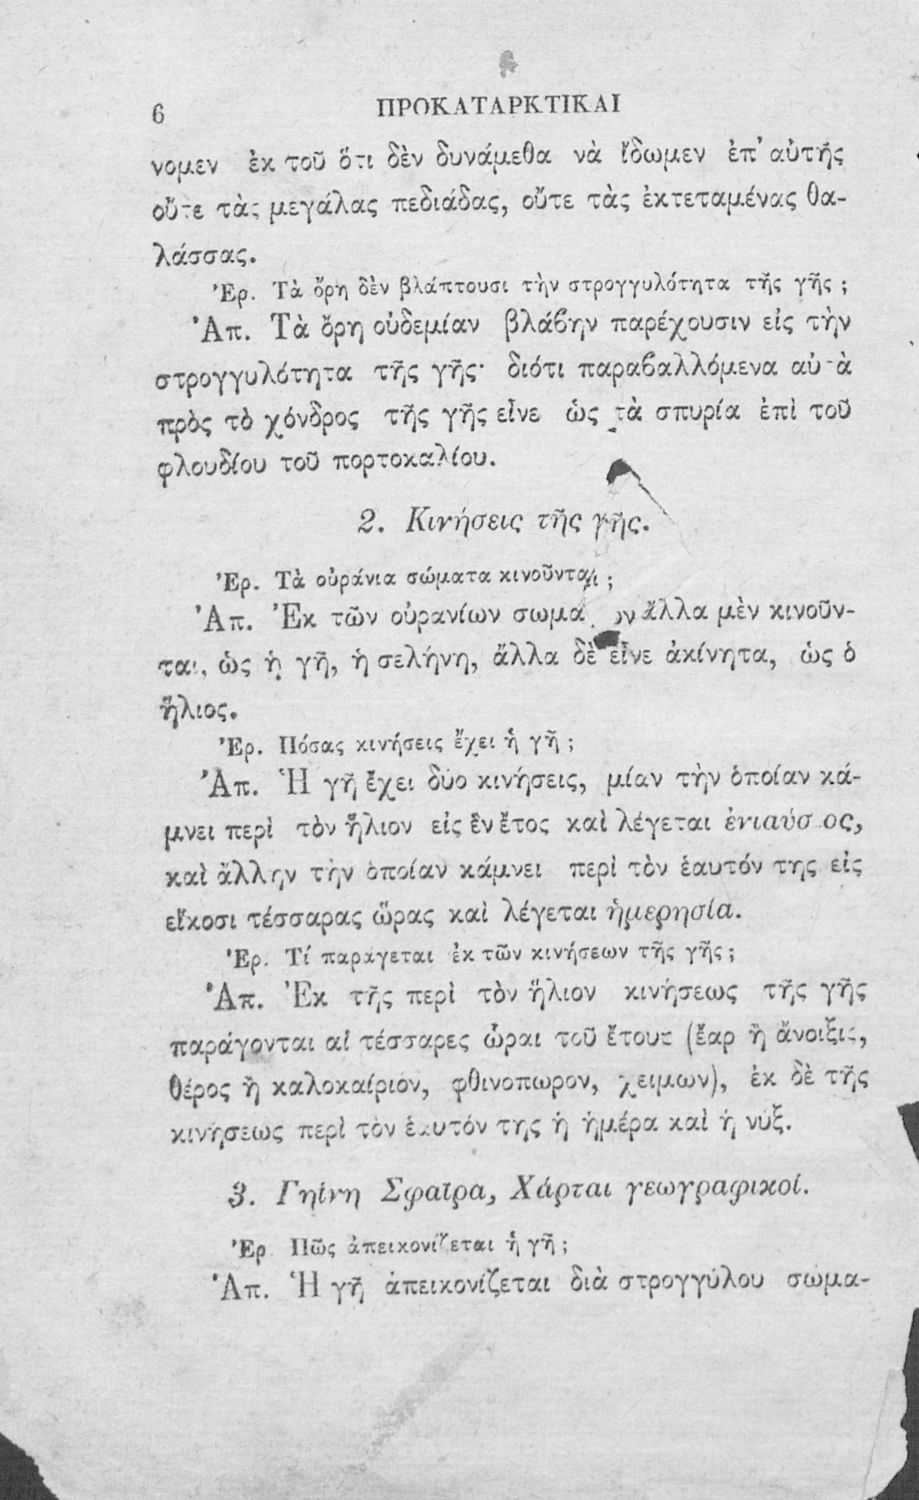 6 ΠΡΟΚΑΤΑΡΚΤΙΚΑΙ
νομεν ἐκ τοῦ ὅτι δὲν δυνάμεθα νὰ ἴδωμεν ἐπ' αὐτῆς
οὔτε τὰς μεγάλας πεδιάδας, οὔτε τὰς ἐκτεταμένας θα-
λάσσας.
Ἐρ. Τὰ ὄρη δὲν βλάπτουσι τὴν στρογγυλότητα τῆς γῆς ;
Ἀπ. Τὰ ὄρη οὐδεμίαν βλάβην παρέχουσιν εἰς τὴν
στρογγυλότητα τῆς γῆς· διότι παραβαλλόμενα αὐτὰ
πρὸς τὸ χόνδρος τῆς γῆς εἶνε ὡς τὰ σπυρία ἐπὶ τοῦ
φλουδίου τοῦ πορτοκαλίου.
2. Κινήσεις τῆς γῆς.
Ἐρ. Τὰ οὐράνια σώματα κινοῦνται ;
Ἀπ. Ἐκ τῶν οὐρανίων σωμάτων ἄλλα μὲν κινοῦν-
ται, ὡς ἡ γῆ, ἡ σελήνη, ἄλλα δὲ εἶνε ἀκίνητα, ὡς ὁ
ἥλιος.
Ἐρ. Πόσας κινήσεις ἔχει ἡ γῆ ;
Ἀπ. Ἡ γῆ ἔχει δύο κινήσεις, μίαν τὴν ὁποίαν κά-
μνει περὶ τὸν ἥλιον εἰς ἓν ἔτος καὶ λέγεται ἐνιαύσιος,
καὶ ἄλλην τὴν ὁποίαν κάμνει περὶ τὸν ἑαυτόν της εἰς
εἴκοσι τέσσαρας ὥρας καὶ λέγεται ἡμερησία.
Ἐρ. Τί παράγεται ἐκ τῶν κινήσεων τῆς γῆς ;
Ἀπ. Ἐκ τῆς περὶ τὸν ἥλιον κινήσεως τῆς γῆς
παράγονται αἱ τέσσαρες ὧραι τοῦ ἔτους (ἔαρ ἢ ἄνοιξις,
θέρος ἢ καλοκαίριον, φθινοπωρον, χειμων), ἐκ δὲ τῆς
κινήσεως περὶ τὸν ἑαυτόν της ἡ ἡμέρα καὶ ἡ νύξ.
3. Γηίνη Σφαῖρα, Χάρται γεωγραφικοί.
Ἐρ Πῶς ἀπεικονίζεται ἡ γῆ ;
Ἀπ. Ἡ γῆ ἀπεικονίζεται διὰ στρογγύλου σώμα-